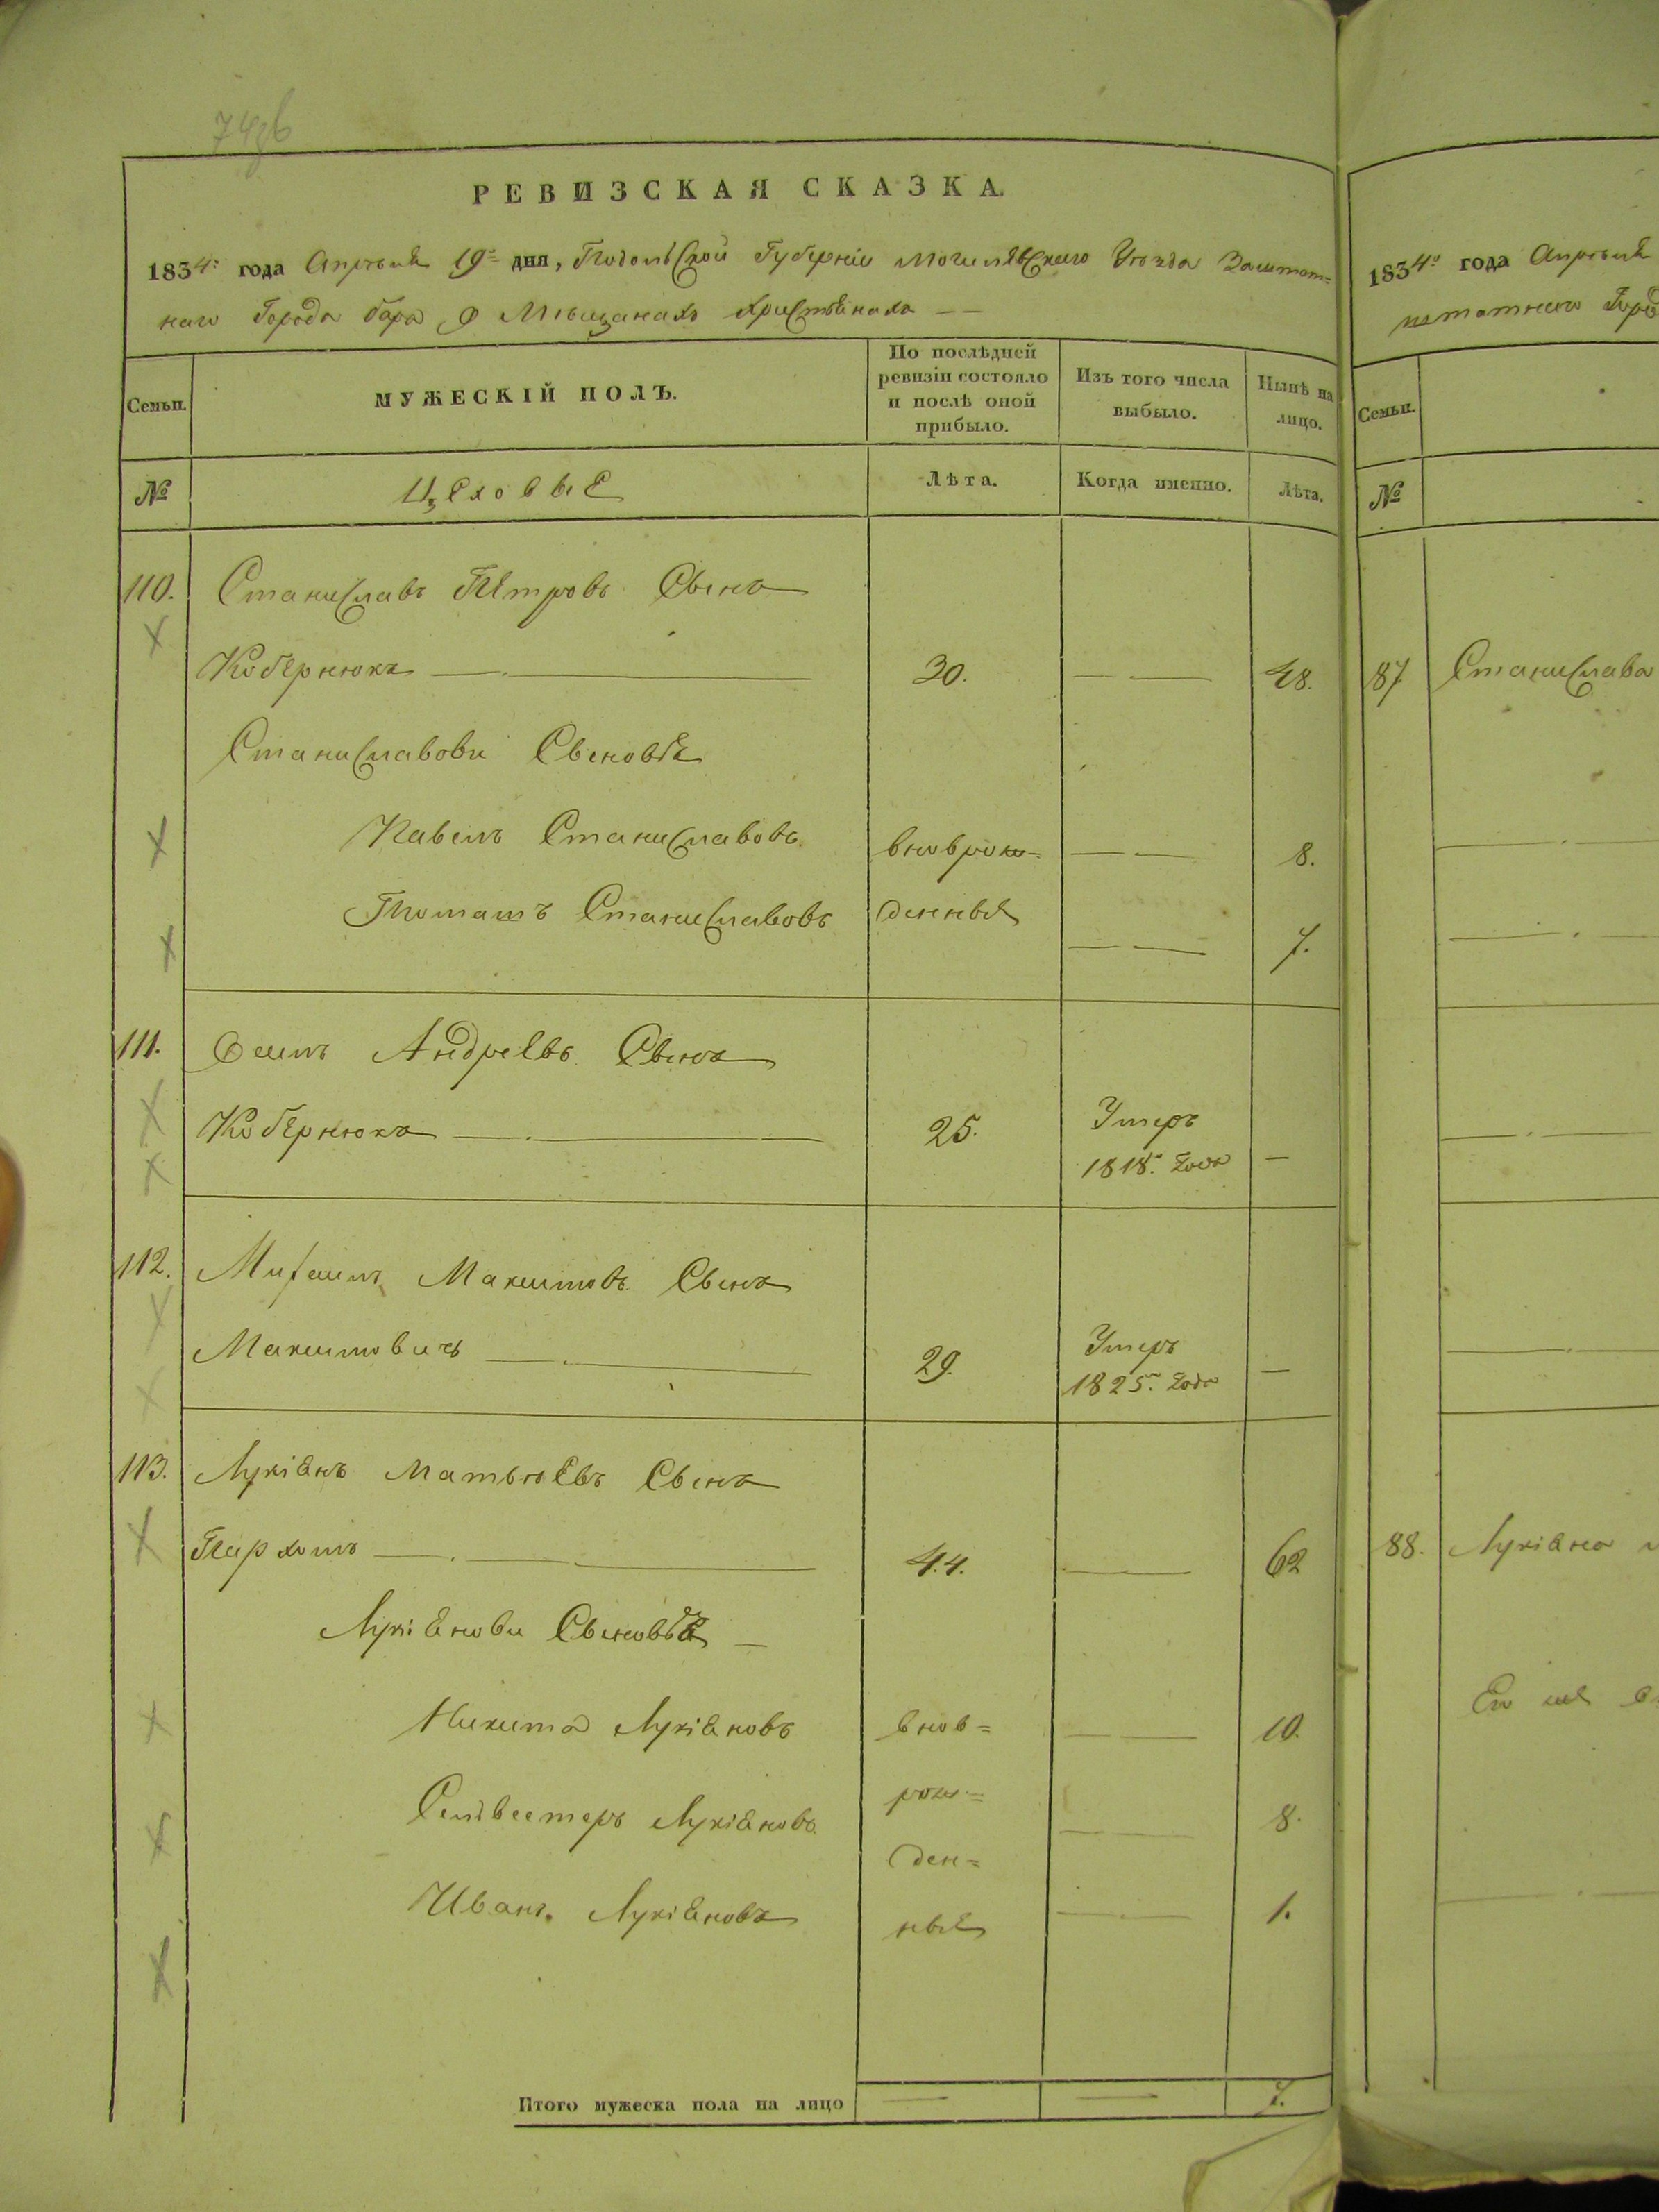 74об
РЕВИЗСКАЯ СКАЗКА.
1834: года Апрѣля 19го дня, Подольской Губерніи Могилевскаго Уѣзда Заштат-
наго Города бара, о Мѣщанахъ христіянахъ
Семьи.
МУЖЕСКІЙ ПОЛЪ.
По послѣдней ревизіи состояло и послѣ оной прибыло.
Изъ того числа выбыло.
Нынѣ на лицо.
№
Цеховые
Лѣта.
Когда именно.
Лѣта.
110. Станиславъ Петровъ Сынъ
Кобернюкъ — 30. — 48.
Станиславови Сыновья
Павелъ Станиславовъ вновърож= — 8.
Томашъ Станиславовъ денныя — 7.
111. Андреевъ Сынъ
Кобернюкъ — 25. Умеръ
1818го года —
112. Максимовъ Сынъ
Максимовичъ — 29. Умеръ
1825го года —
113. Лукіянъ Матвѣевъ Сынъ
Пархомъ — 44. — 62
Лукіянови Сыновья —
Никита Лукіяновъ внов= — 10.
рож=
Сельвестеръ Лукіяновъ — 8.
ден=
Иванъ Лукіяновъ — 1.
ные
Итого мужеска пола на лицо — — 7.
1834го года Апрѣля
штатнаго Горо
Семьи.
№
87 Станислава
88. Лукіяна
Его же